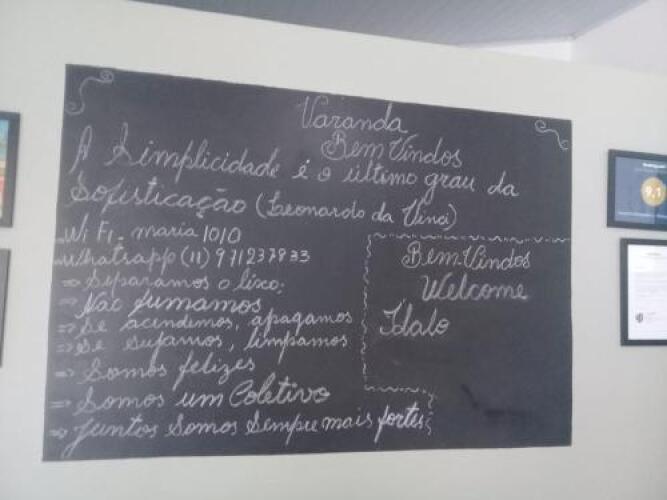 Varanda
Bem Vindos
A Simplicidade é o último grau da
Sofisticação (Leonardo da Vinci)
Wi Fi - maria1010
Whatsapp (11) 971237833
⇒ Separamos o lixo;
⇒ Não fumamos
⇒ Se acendemos, apagamos
⇒ Se sujamos, limpamos
⇒ Somos felizes
⇒ Somos um Coletivo
⇒ Juntos Somos Sempre mais fortes
Bem Vindos
Welcome
Idalo
9,1